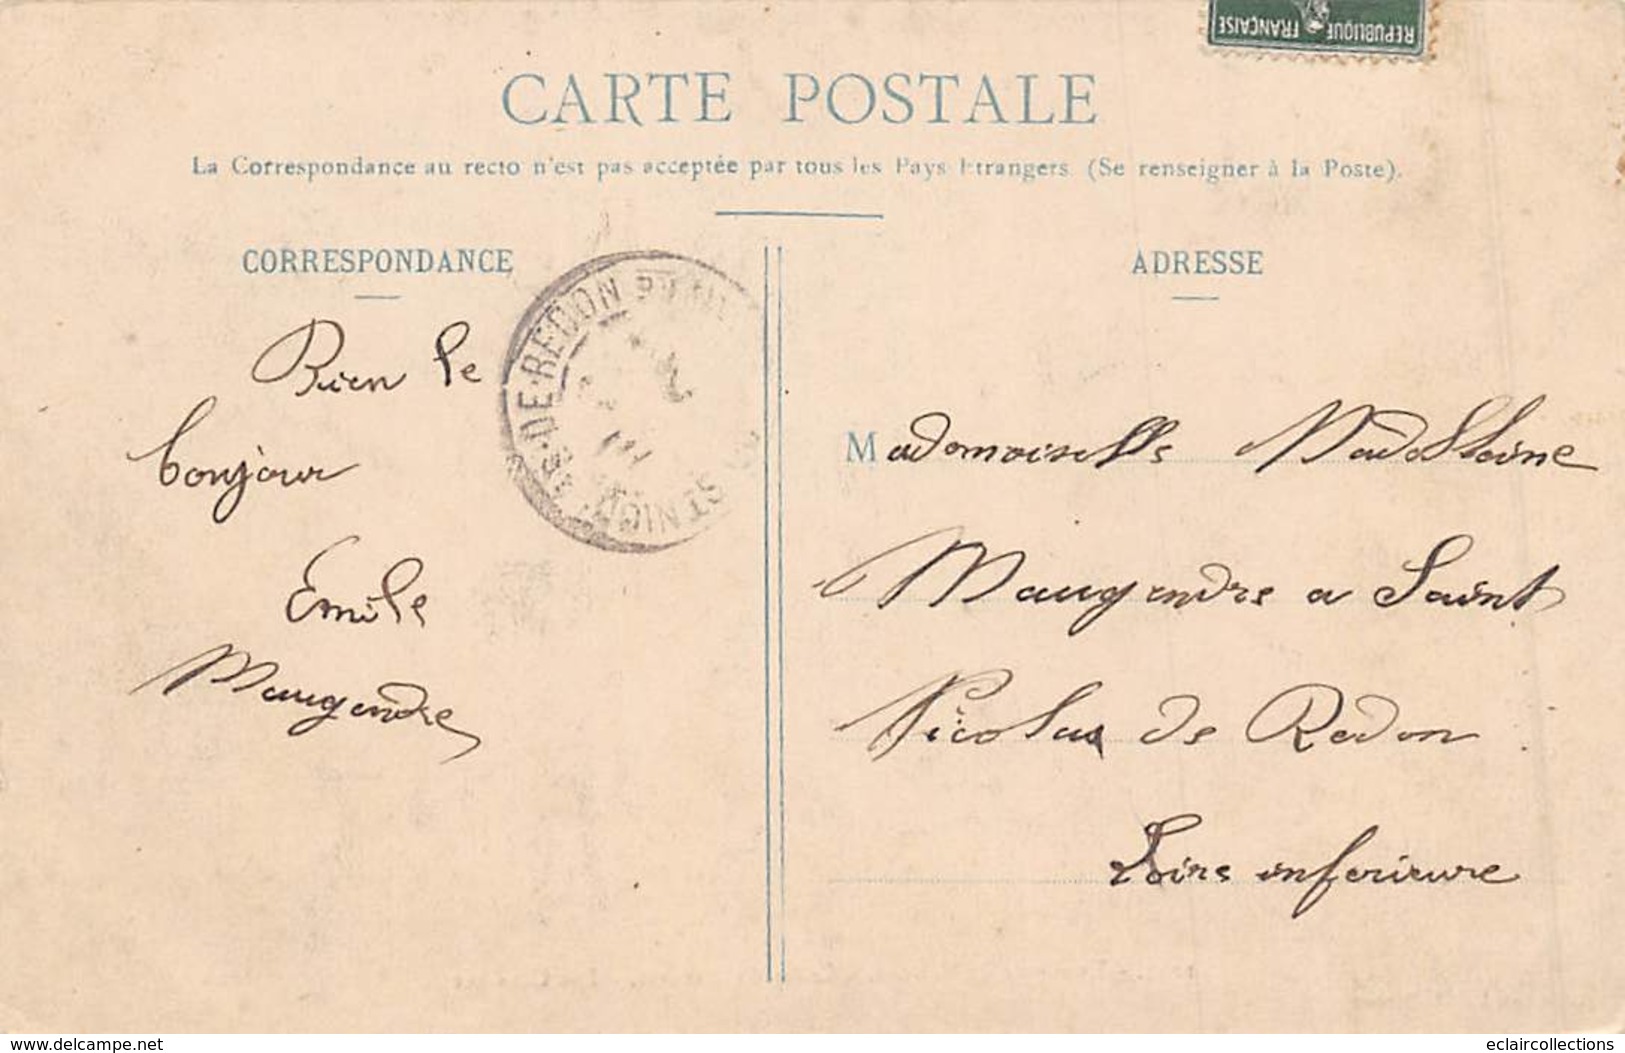 REPUBLIQUE FRANÇAISE
CARTE POSTALE
La Correspondance au recto n'est pas acceptée par tous les Pays Etrangers (Se renseigner à la Poste).
CORRESPONDANCE
Bien le
bonjour
Emile
Maugendre
DE-REDON
ST NIC
ADRESSE
Mademoiselle Madelleine
Maugendre a Saint
Nicolas de Redon
Loire inferieure
delcampe.net
eclaircollections